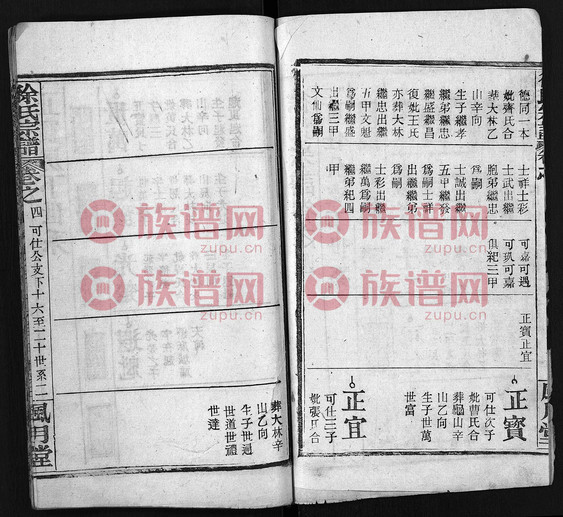 德同一本
妣齊氏合
葬大林乙
山辛向
生子繼孝
繼弟繼忠
繼盛繼昌
復妣王氏
亦葬大林
繼忠出繼
五甲文魁
爲嗣繼盛
出繼三甲
文仙爲嗣
士祥士彩
士武出繼
胞弟繼忠
爲嗣
士誠出繼
五甲繼發
爲嗣士祥
出繼繼弟
爲嗣
士彩出繼
繼萬爲嗣
繼弟紀四
甲
可嘉可遇
可玖可嘉
俱紀三甲
正賓正宜
正賓
可仕次子
妣曹氏合
葬龜山辛
山乙向
生子世萬
世富
正宜
可仕三子
妣張氏合
葬大林辛
山乙向
生子世迴
世道世禮
世達
徐氏宗譜
卷之四
可仕公支下十六至二十世系二
風月堂
族谱网
zupu.cn
族谱网
zupu.cn
族谱网
zupu.cn
族谱网
zupu.cn